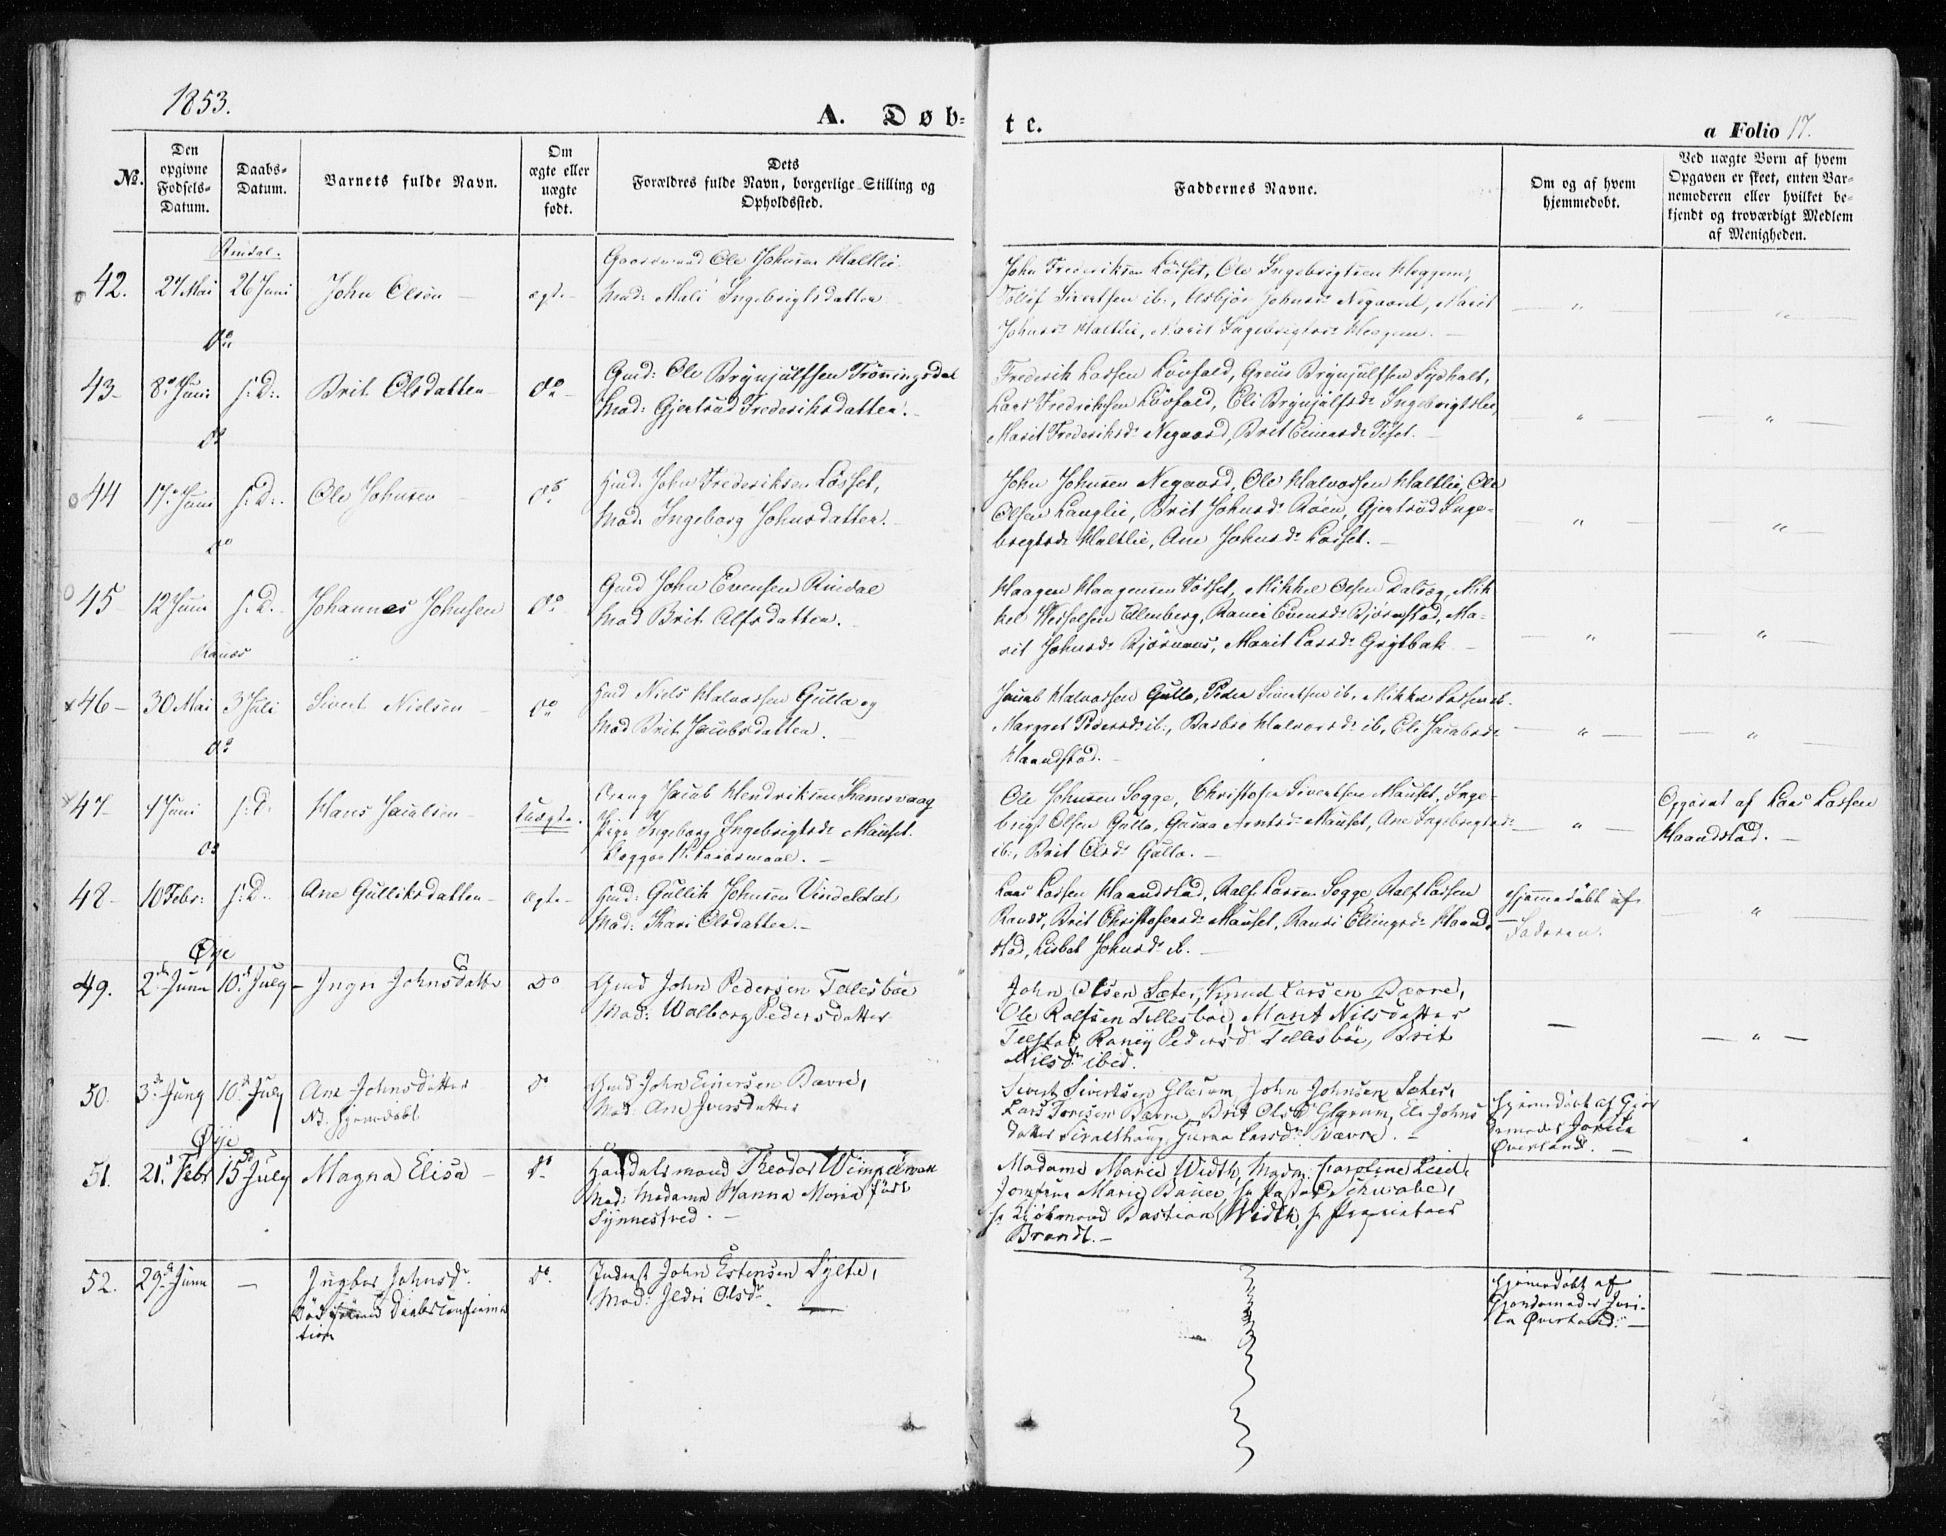 1853.
A. Døb-
te.
a Folio 17.
No.
Den opgivne Fødsels-Datum.
Daabs-Datum.
Barnets fulde Navn.
Om ægte eller uægte født.
Dets Forældres fulde Navn, borgerlige Stilling og Opholdssted.
Faddernes Navne.
Om og af hvem hjemmedøbt.
Ved uægte Børn af hvem Opgaven er skeet, enten Barnemoderen eller hvilket bekjendt og troværdigt Medlem af Menigheden.
Rindal.
42. 27 Mai 26 Juni John Olsen ægte
Gaardmand Ole Johnsen Haltlie
Mod: Mali Ingebrigtsdatter
John Frederiksen Løsset, Ole Ingebrigtsen Heggem,
Tollef Sivertsen ib:, Johnsdr Negaard, Marit
Johnsdr Haltlie, Marit Ingebrigtsdr Heggem.
Do
43 8de Juni s: D: Brit Olsdatter Do
Gmd: Ole Brynjulfsen Trønningsdal
Mod: Gjertrud Frederiksdatter.
Frederik Larsen Løvfald, Brynjulfsen
Lars Fredriksen Løvfald, Eli Brynjulfsdr Ingebrigtslie
Marit Frederiksdr Negaard, Brit
Do
44 17de Juni s: D: Ole Johnsen Do
John Frederiksen Løsset,
Mod: Ingeborg Johnsdatter.
John Johnsen Negaard, Ole Halvorsen Haltlie, Ole
Olsen Langlie, Brit Johnsdr Røen, Gjertrud Inge-
brigtsdr Haltlie, Ane Johnsdr Løsset.
Do
45 12 Juni s: D. Johannes Johnsen Do
Gmd John Evensen Rindal
Mod Brit Alfsdatter.
Haagen Haagensen Tøsset, Mikkel Olsen Dalsæg, Mik-
kel Ellenberg, Evensdr Bjørnstad, Ma-
rit Johnsdr Bjørnaas, Marit Larsdr Grytbak
Ranæs
46 30 Mai 3 Juli Sivert Nielsen Do
Niels Halvorsen Gulla og
Mod Brit Jacobsdatter.
Jacob Halvorsen Gulla, Peder Sivertsen ib, Mikkel Larsen ib.
Margret Pedersdr ib:, Barbro Halvorsdr ib, Eli Jacobsdr
Haandstad.
Do
47 1 Juni s: D. Hans Jacobsen Uægte.
Dreng Jacob Hendriksen Kamsvaag
Pige Ingeborg Ingebrigtsdr Mauset.
Begges 1ste Leiermaal.
Ole Johnsen Sogge, Christofer Sivertsen Mauset, Inge-
brigt Olsen Gulla, Guraa Arntsdr Mauset, Ane Ingebrigtsdr
ib:, Brit Olsdr Gulla.
Opgivet af Lars Larsen
Haandstad.
Do
48 10 Febr: s: D. Ane Gulliksdatter ægte
Gullik Johnsen Vindeldal
Mod: Kari Olsdatter.
Lars Larsen Haandstad, Rolf Larsen Sogge, Rolf Larsen
Ranæs, Brit Christofersdr Mauset, Ellingsdr Haand-
stad, Lisbet Johnsdr ib.
Hjemmedøbt af
Faderen.
Øye
49. 2de Juni 10de July Ingri Johnsdatter Do
Gmd John Pedersen Tellesbøe
Mod: Walborg Pedersdatter
John Olsen Sæter, Knud Larsen Bævre,
Ole Rolfsen Tellesbøe, Marit Nilsdatter
Pedersdr Tellesbøe, Brit
Nilsdr ibid.
50. 3de Juny 10de July Ane Johnsdatter Do
NB. hjemdøbt
Gmd John Einersen Bævre,
Mod: Ane Iversdatter
Sivert Sivertsen Glærum, John Johnsen Sæter,
Lars Toresen Bævre, Brit Olsdr Glærum, Johns
datter Guraa Larsdr Bævre.
Hjemmedøbt af Gjor-
demoder
Øverland.
Øye
51. 21. Febr 15de July Magna Elisa Do
Handelsmand Theodor
Mod: Madame Hanna Maria født
Synnestved.
Madame Marie Width, Madm Caroline Lied,
Jomfrue Marie Bauer, Hr Pastor Schwabe,
Hr Kjøbmand Bastian Width, Hr Proprietair
Brandt.
52. 29de Juni — Ingbor Johnsdr. Do.
Død Daabsconfirma
tion
Inderst John Estensen Sylte,
Mod: Jedri Olsdr.
Hjemmedøbt af
Gjordemoder
Øverland.